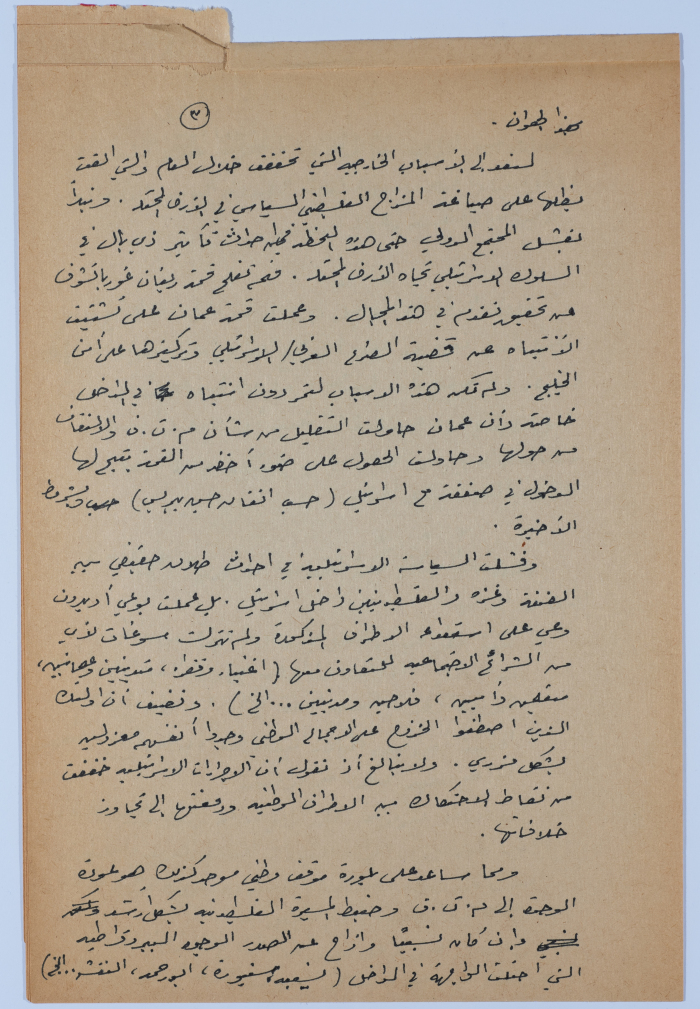 ٣
بهذا الهوان.
لنعد إلى الأسباب الخارجية التي تحققت خلال العام والتي القت
بظلها على صياغة المزاج الفلسطيني السياسي في الأرض المحتلة. ونبدأ
بفشل المجتمع الدولي حتى هذه اللحظة في احداث تأثير ذي بال في
السلوك الاسرائيلي تجاه الأرض المحتلة. فلم تفلح قمة ريغان غورباتشوف
عن تحقيق تقدم في هذا المجال. وعملت قمة عمان على تشتيت
الأنتباه عن قضية الصراع العربي/الاسرائيلي وتركيزها على أمن
الخليج. ولم تكن هذه الاسباب لتمر دون انتباه في الداخل
خاصة وأن عمان حاولت التقليل من شأن م.ت.ف والالتفاف
من حولها وحاولت الحصول على ضوء أخضر من القمة يتيح لها
الدخول في صفقة مع اسرائيل (حسب اتفاق حسين بيريس) وبشروط
الأخيرة.
وفشلت السياسة الاسرائيلية في احداث طلاق حقيقي بين
الضفة وغزة والفلسطينيين داخل اسرائيل. بل عملت بوعي أو بدون
وعي على استعداء الاطراف المذكورة ولم تترك مسوغات لأي
من الشرائح الاجتماعية للتعاون معها (اغنياء وفقراء، متدينين وعلمانيين،
مثقفين وأميين، فلاحين ومدنيين ...الخ). ونضيف أن اولئك
الذين اصطفوا الخروج على الاجماع الوطني وجدوا أنفسهم معزولين
بشكل مزري. ولا نبالغ أن نقول أن الاجراءات الاسرائيلية خففت
من نقاط الاحتكاك بين الاطراف الوطنية ودفعتها إلى تجاوز
خلافاتها.
ومما ساعد على بلورة موقف وطني موحد كذلك هو عودة
الوحدة إلى م.ت.ف وضبط المسيرة الفلسطينية بشكل أشد
وإن كان نسبيًا وازاح عن الصدر الوجوه البيروقراطية
التي احتلت الواجهة في الداخل (